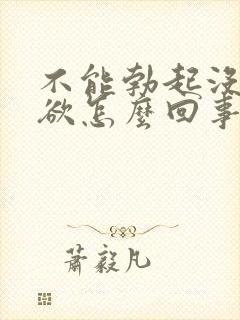 不能勃起沒
欲怎麼回事
蕭毅凡